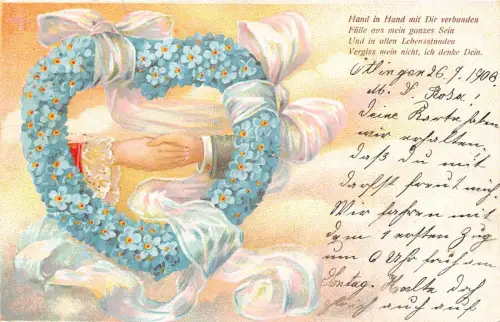 Hand in Hand mit Dir verbunden
Fülle aus mein ganzes Sein
Und in allen Lebensstunden
Vergiss mein nicht, ich denke Dein.
Ötlingen 26. 7. 1906.
M. L. Rosa!
Deine Karte haben
wir erhalten.
daß du mit
darfst freut mich.
Wir fahren mit
dem 1 ersten Zug
um 6 Uhr früh am
Sontag. Halte doch
auch auf